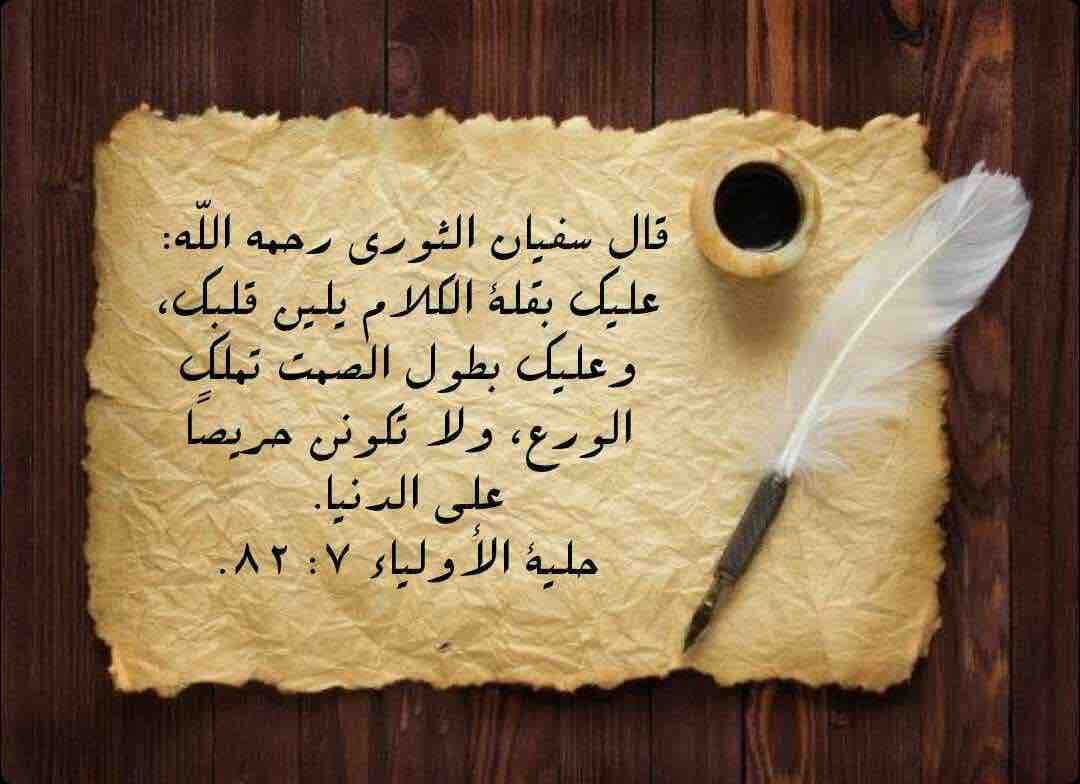 قال سفيان الثورى رحمه اللّه:
عليك بقلة الكلام يلين قلبك،
وعليك بطول الصمت تملك
الورع، ولا تكونن حريصاً
على الدنيا.
حلية الأولياء ٧: ٨٢.